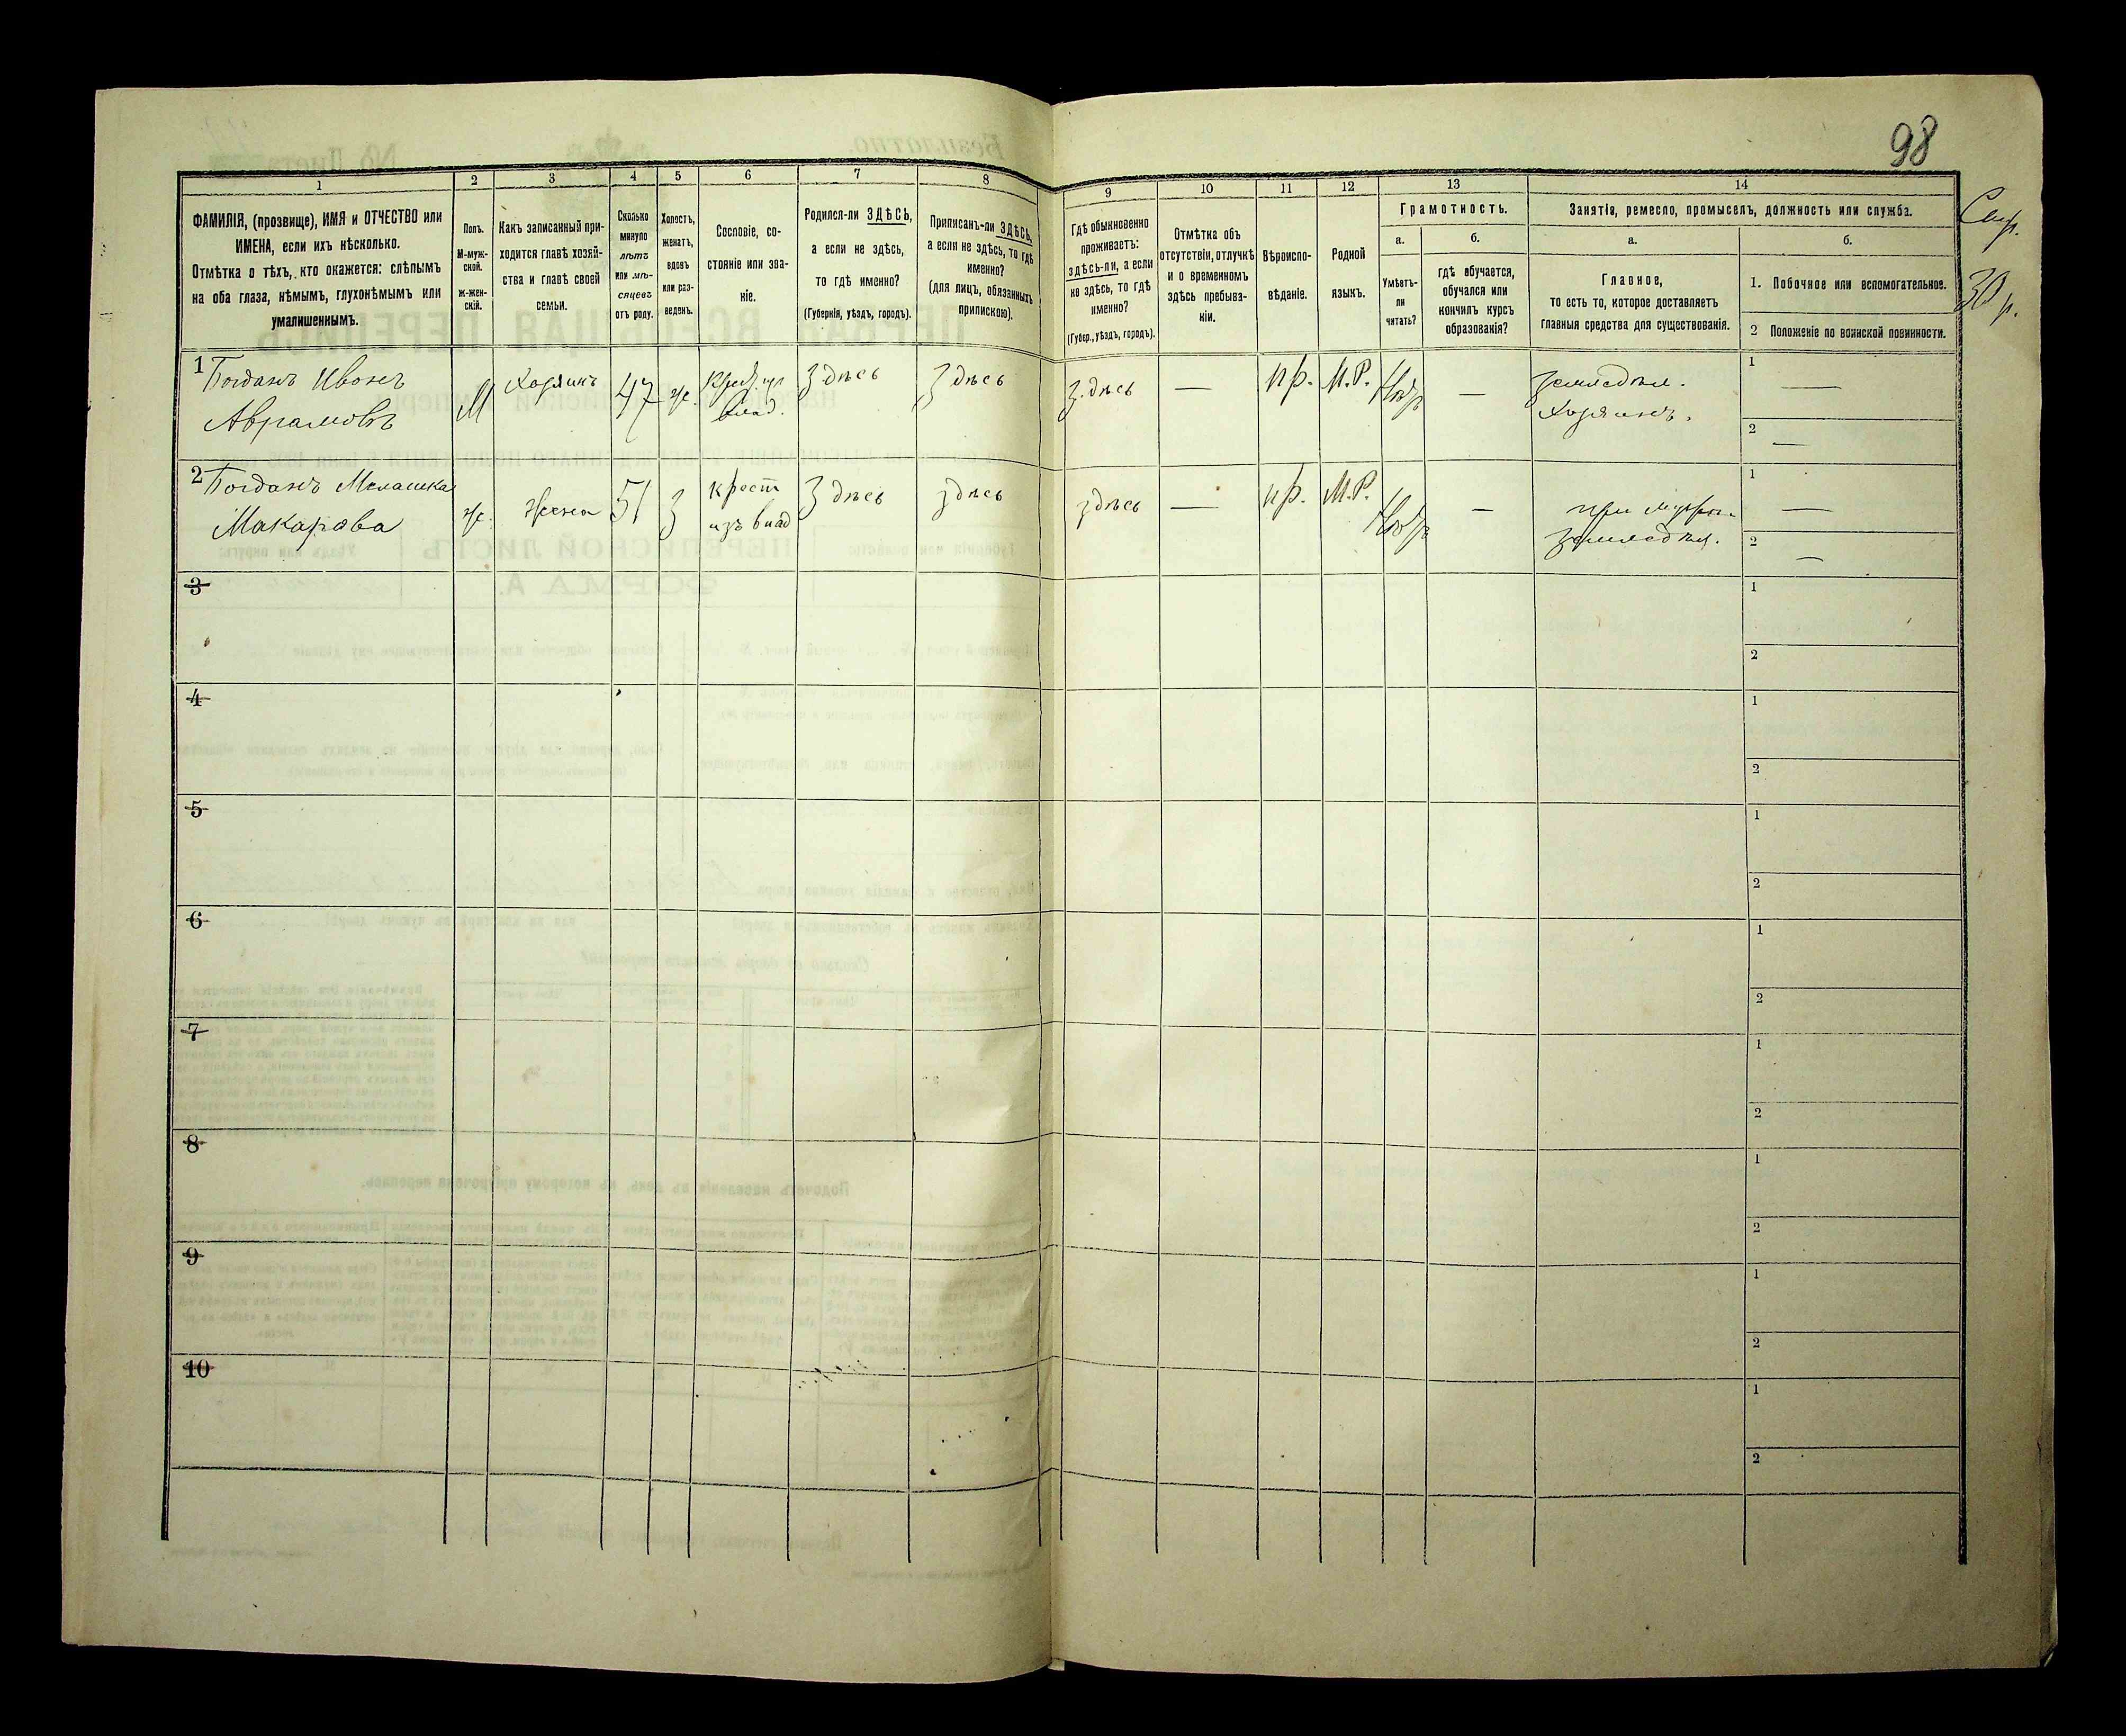 98
1
2
3
4
5
6
7
8
9
10
11
12
13
14
ФАМИЛІЯ, (прозвище), ИМЯ и ОТЧЕСТВО или
ИМЕНА, если ихъ нѣсколько.
Отмѣтка о тѣхъ, кто окажется: слѣпымъ
на оба глаза, нѣмымъ, глухонѣмымъ или
умалишеннымъ.
Полъ.
М-муж-
ской.
ж-жен-
скій.
Какъ записанный при-
ходится главѣ хозяй-
ства и главѣ своей
семьи.
Сколько
минуло
лѣтъ
или мѣ-
сяцевъ
отъ роду.
Холостъ,
женатъ,
вдовъ
или раз-
веденъ.
Сословіе, со-
стояніе или зва-
ніе.
Родился-ли ЗДѢСЬ,
а если не здѣсь,
то гдѣ именно?
(Губернія, уѣздъ, городъ).
Приписанъ-ли ЗДѢСЬ,
а если не здѣсь, то гдѣ
именно?
(для лицъ, обязанныхъ
припискою).
Гдѣ обыкновенно
проживаетъ:
здѣсь-ли, а если
не здѣсь, то гдѣ
именно?
(Губер., уѣздъ, городъ).
Отмѣтка объ
отсутствіи, отлучкѣ
и о временномъ
здѣсь пребыва-
ніи.
Вѣроиспо-
вѣданіе.
Родной
языкъ.
Грамотность.
а.
Умѣетъ-
ли
читать?
б.
гдѣ обучается,
обучался или
кончилъ курсъ
образованія?
Занятіе, ремесло, промыселъ, должность или служба.
а.
Главное,
то есть то, которое доставляетъ
главныя средства для существованія.
б.
1. Побочное или вспомогательное.
2 Положеніе по воинской повинности.
30 р.
1 Богданъ Ивонъ
Аврамовъ
М
Хозяинъ
47
ж.
влад.
Здѣсь
Здѣсь
Здѣсь
—
пр.
М.Р.
—
земледѣл.
Хозяинъ.
1
—
2
—
2 Богданъ Мелашка
Макарова
ж.
жена
51
З
крест
изъ влад
Здѣсь
здѣсь
здѣсь
—
пр.
М.Р.
—
при мужѣ
земледѣл.
1
—
2
—
3
1
2
4
1
2
5
1
2
6
1
2
7
1
2
8
1
2
9
1
2
10
1
2